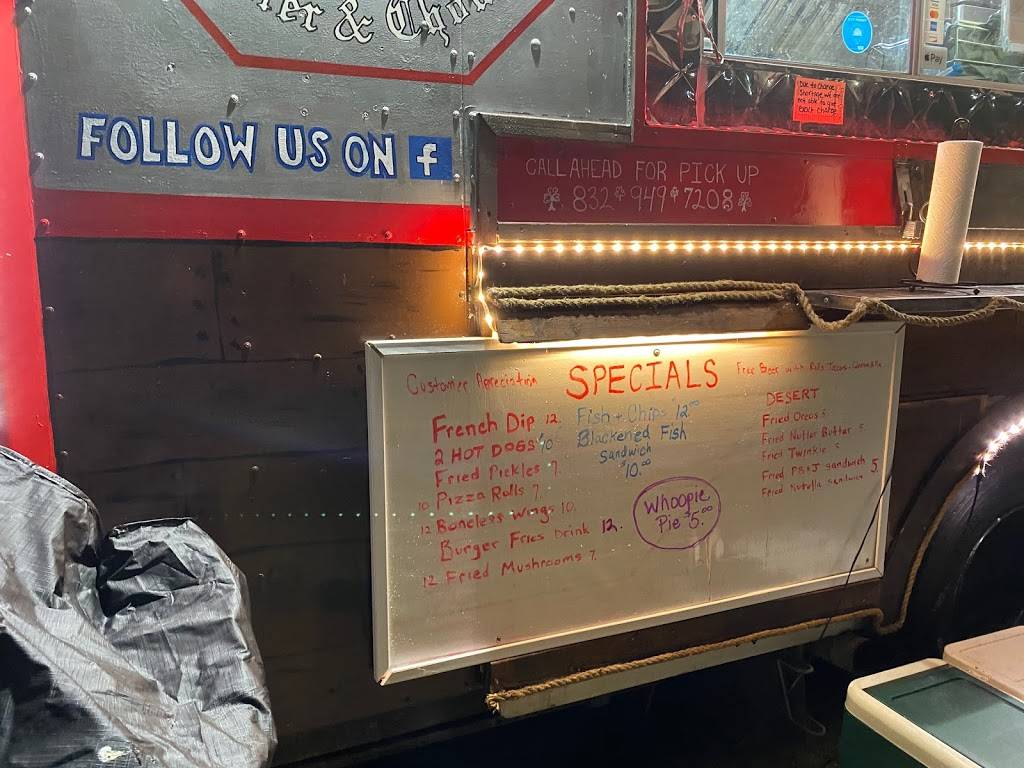 & Chow
FOLLOW US ON f
Pay
Due to Change
Shortage we are
not able to give
Exact Change
CALL AHEAD FOR PICK UP
832 949 7208
Customer Apreciation
SPECIALS
Free Beer with
French Dip 12.
2 HOT DOGS 10
Fried Pickles 7.
10 Pizza Rolls 7.
12 Boneless Wings 10.
Burger Fries Drink 12.
12 Fried Mushrooms 7.
Fish + Chips 12.00
Blackened Fish
Sandwich
$10.00
Whoopie
Pie $5.00
DESERT
Fried Oreos 5
Fried Nutter Butter 5.
Fried Twinkie 5
Fried PB+J Sandwich 5.
Fried Nutella Sandwich